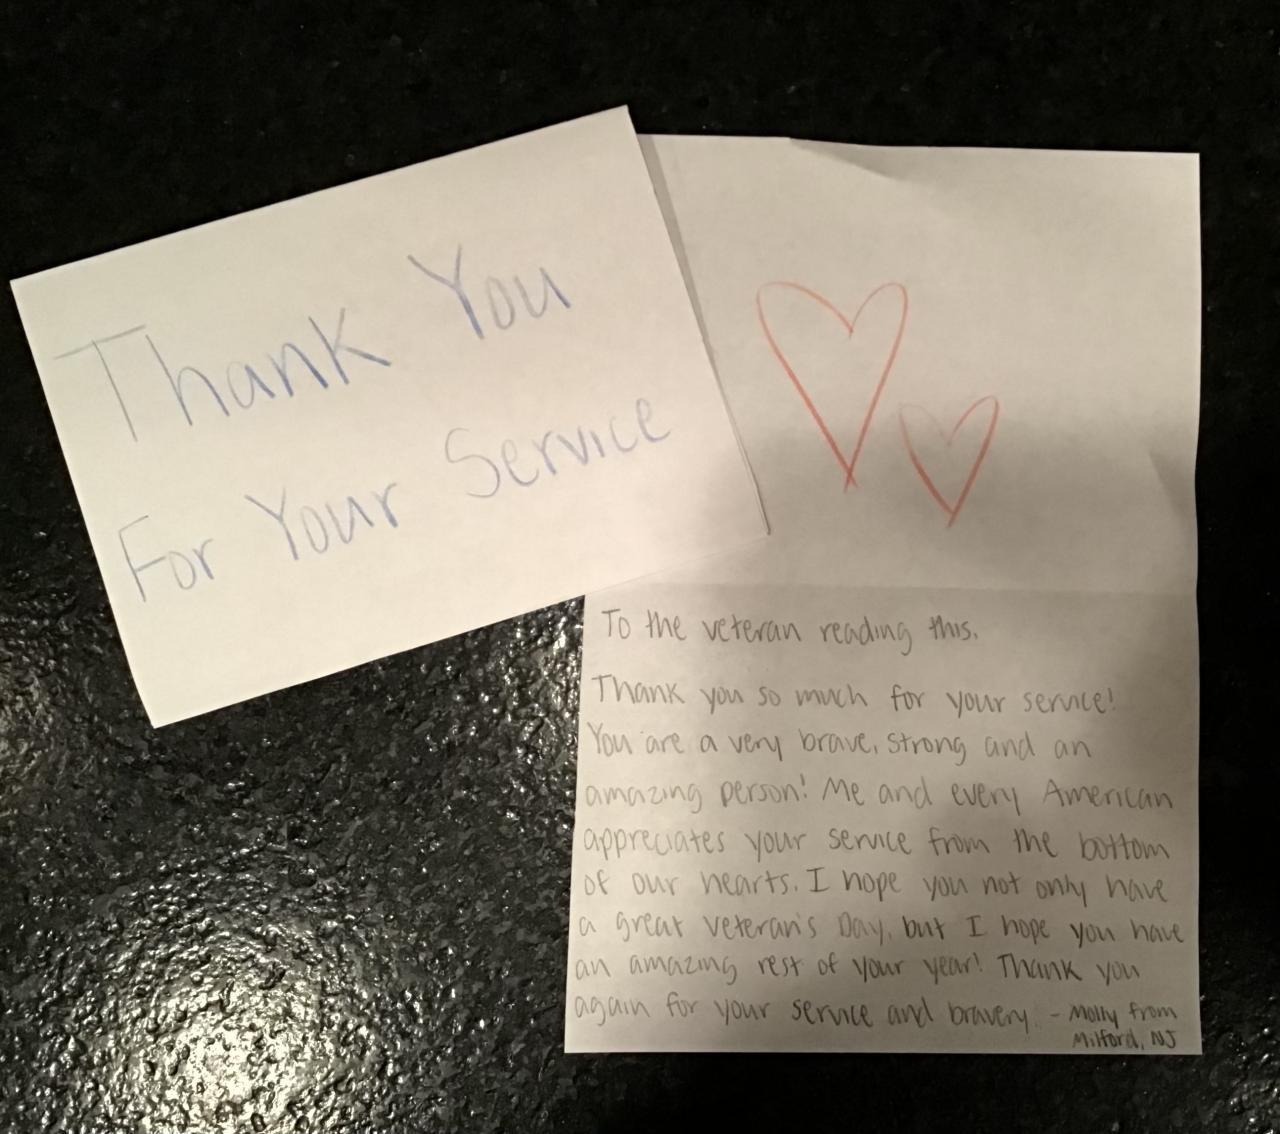 Thank You
For Your Service
To the veteran reading this,
Thank you so much for your service!
You are a very brave, strong and an
amazing person! Me and every American
appreciates your service from the bottom
of our hearts. I hope you not only have
a great Veteran's Day, but I hope you have
an amazing rest of your year! Thank you
again for your service and bravery. - Molly from
Milford, NJ